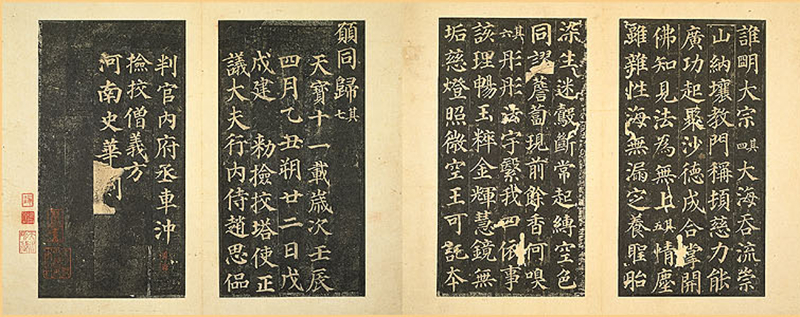 誰明大宗其四大海吞流崇
山納壤教門稱頓慈力能
廣功起聚沙德成合掌開
佛知見法為無上其五情塵
雖雜性海無漏定養聖胎
染生迷鷇斷常起縛空色
同謬薝蔔現前餘香何嗅
其六彤彤法宇繫我四依事
該理暢玉粹金輝慧鏡無
垢慈燈照微空王可託本
願同歸其七
天寶十一載歲次壬辰
四月乙丑朔廿二日戊
戌建 勑檢挍塔使正
議大夫行內侍趙思偘
判官內府丞車沖
檢挍僧義方
河南史華